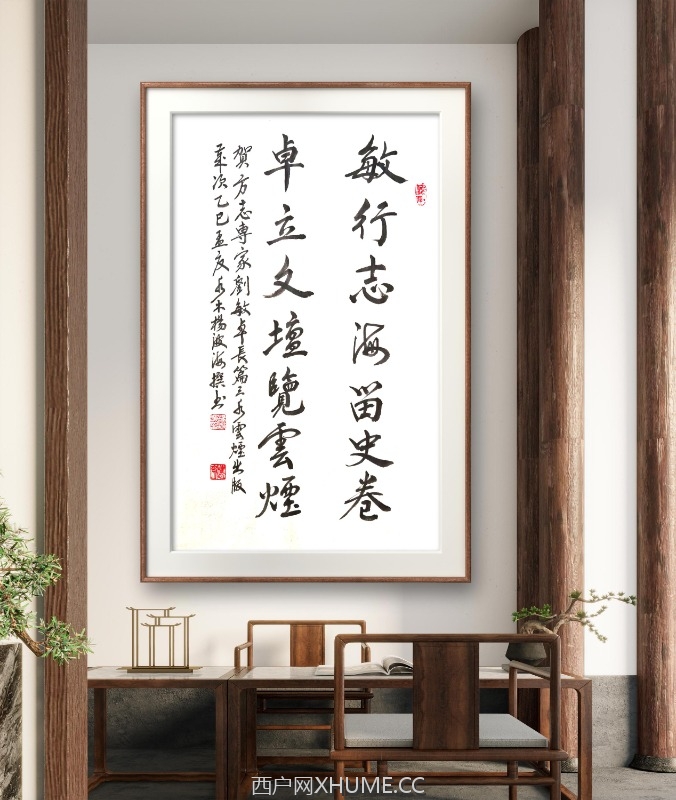 敏行志海留史卷
卓立文壇覽雲煙
賀方志專家劉敏卓長篇三水雲煙出版
歲次乙巳孟夏水木楊波海撰书
西户网XHUME.CC